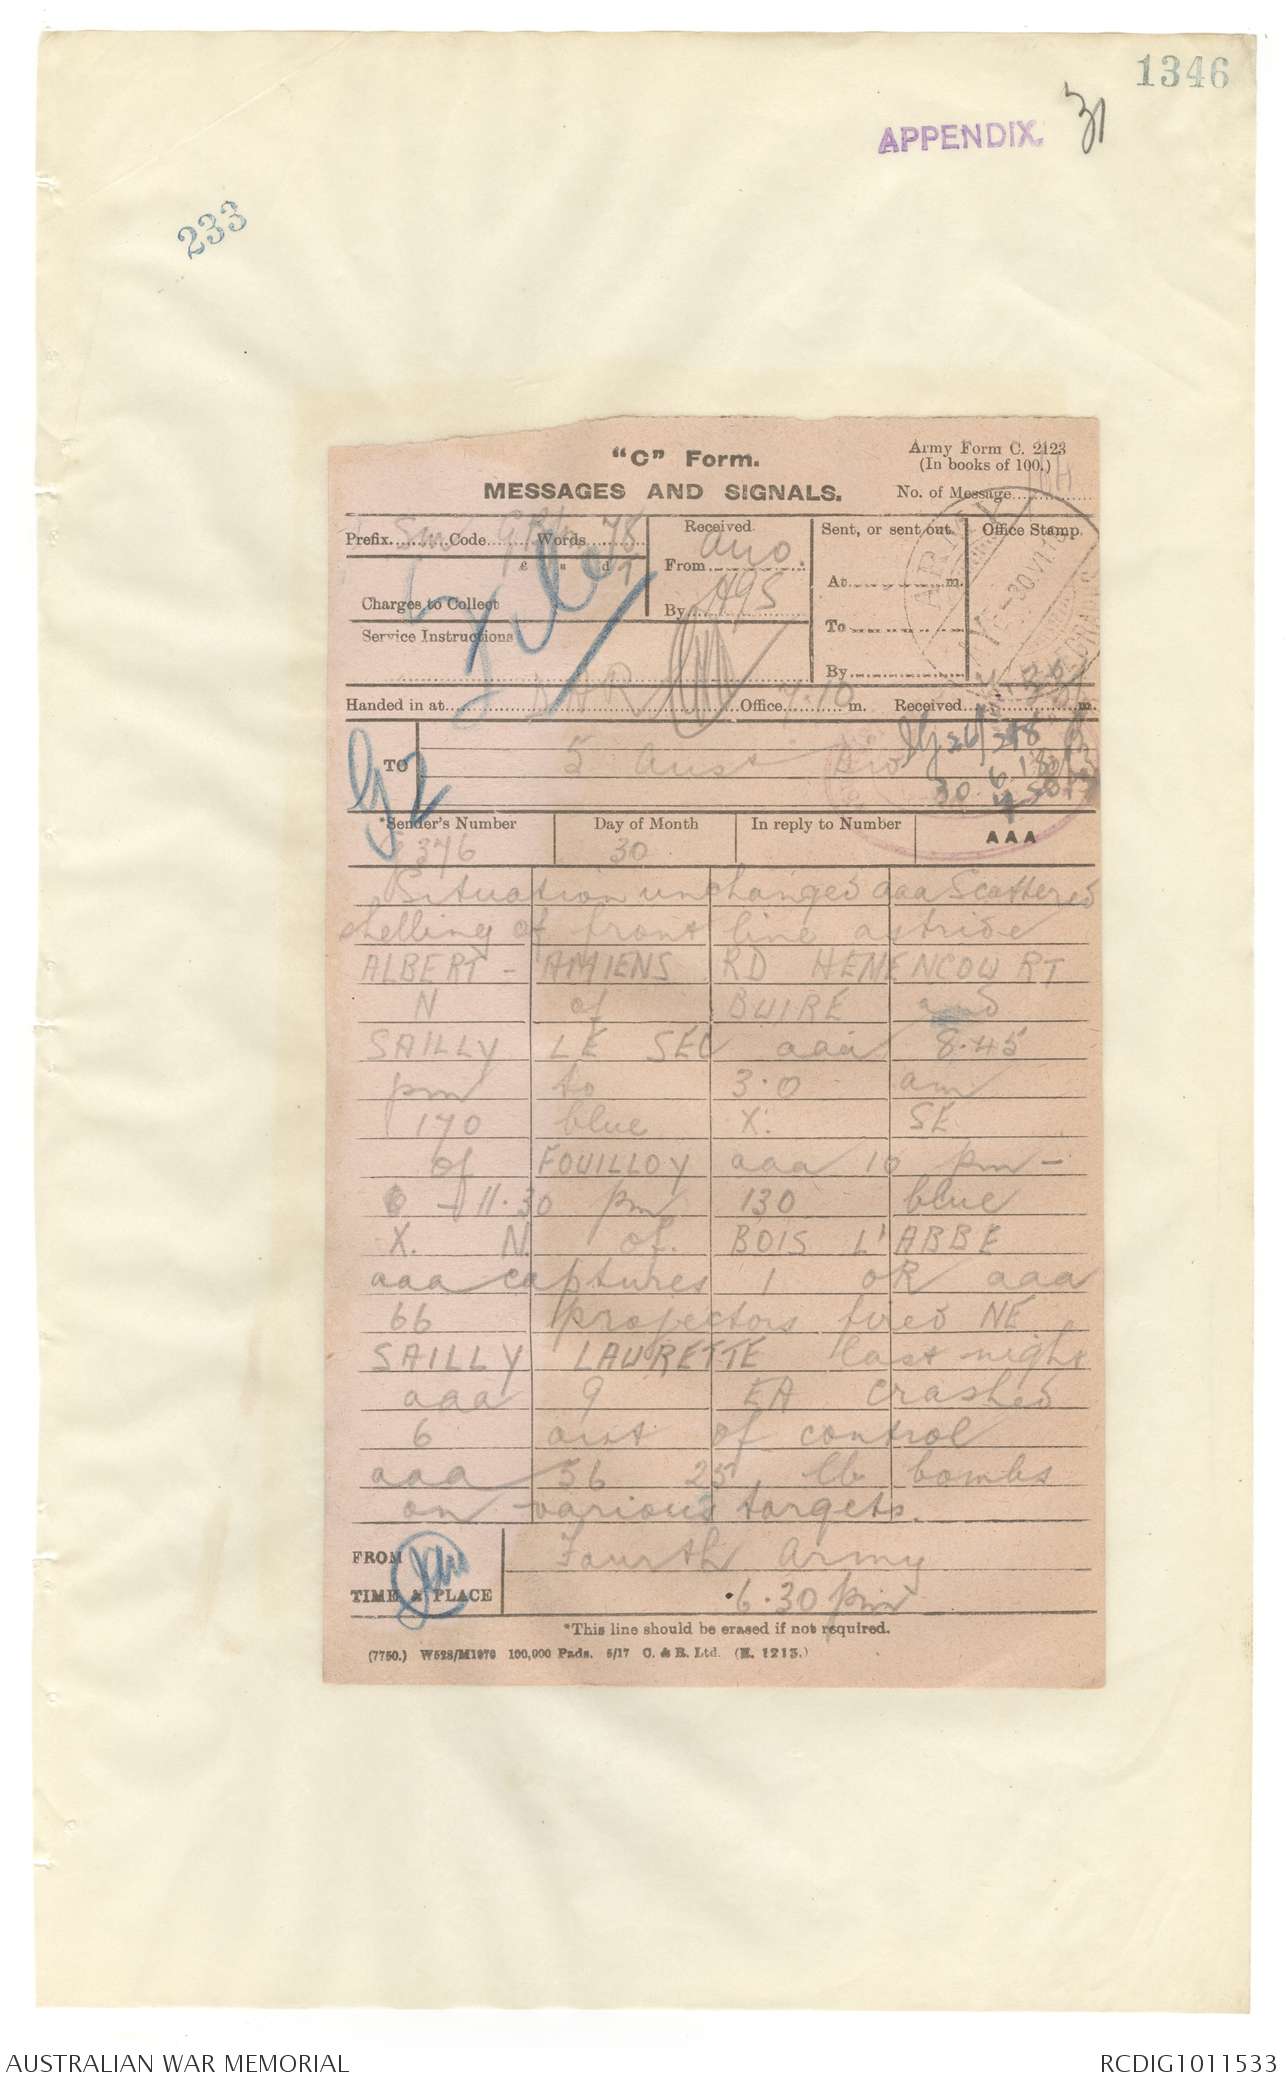 1346
APPENDIX. 31
233
"C" Form.
Army Form C. 2123
(In books of 100.)
MESSAGES AND SIGNALS.
No. of Message
Prefix Sm Code Words 78
Received
From
By
Sent, or sent out
At m.
To
By
Office Stamp.
£ s d
Charges to Collect
Service Instructions
Handed in at Office 7.10 m. Received m.
TO 5 Aust Div
30.6.18
G2
*Sender's Number 376
Day of Month 30
In reply to Number
AAA
Situation unchanged aaa Scattered
shelling of front line astride
ALBERT - AMIENS RD HENENCOURT
N of BUIRE and
SAILLY LE SEC aaa 8.45
pm to 3.0 am
170 blue X. SE
of FOUILLOY aaa 10 pm -
- 11.30 pm 130 blue
X. N. of. BOIS L'ABBE
aaa captures 1 OR aaa
66 projectors fired NE
SAILLY LAURETTE last night
aaa 9 EA crashed
6 out of control
aaa 56 25 lb bombs
on various targets.
FROM Fourth Army
TIME & PLACE 6.30 pm
*This line should be erased if not required.
(7750.) W528/M1970 100,000 Pads. 5/17 C. & R. Ltd. (E. 1213.)
AUSTRALIAN WAR MEMORIAL
RCDIG1011533